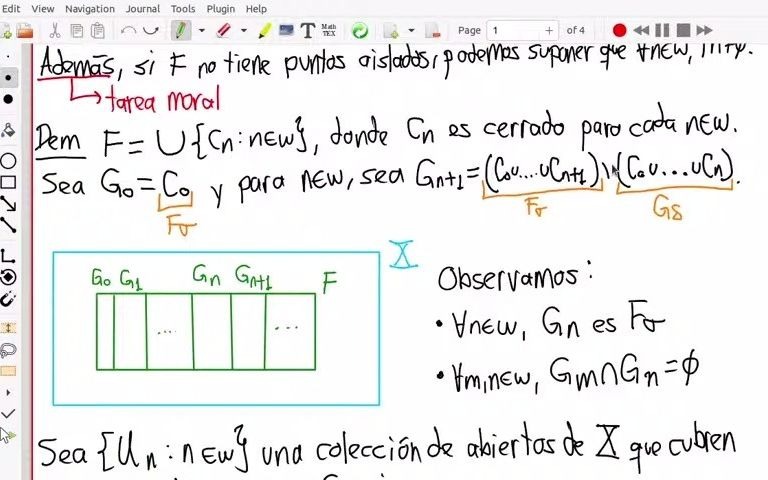 Edit View Navigation Journal Tools Plugin Help
Math TEX Page 1 of 4
Además, si F no tiene puntos aislados, podemos suponer que ∀n∈ω,
→ tarea moral
Dem F = ∪{Cn : n∈ω}, donde Cn es cerrado para cada n∈ω.
Sea G₀ = C₀ y para n∈ω, sea Gn+1 = (C₀∪...∪Cn+1) \ (C₀∪...∪Cn).
Fσ Fσ Gδ
X
G₀ G₁ Gn Gn+1 F
... ...
Observamos:
• ∀n∈ω, Gn es Fσ
• ∀m,n∈ω, Gm∩Gn = ∅
Sea {Un : n∈ω} una colección de abiertos de X que cubren